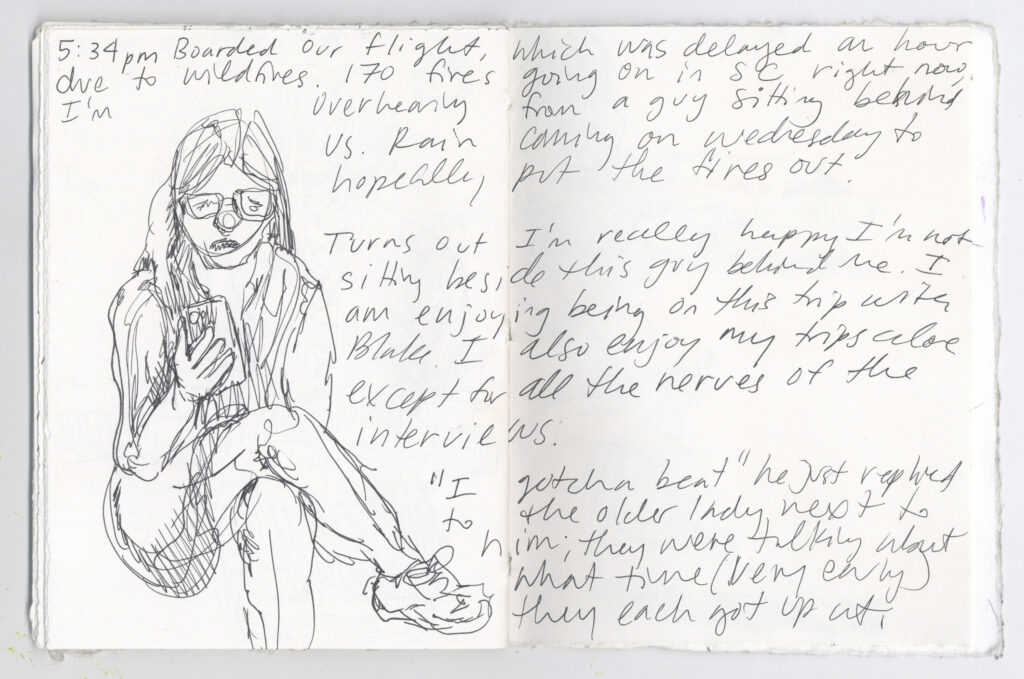 5:34 pm Boarded our flight, which was delayed an hour
due to wildfires. 170 fires going on in SC right now,
I'm overhearing from a guy sitting behind
us. Rain coming on wednesday to
hopefully put the fires out.
Turns out I'm really happy I'm not
sitting beside this guy behind me. I
am enjoying being on this trip with
Blake. I also enjoy my trips alone
except for all the nerves of the
interviews.
"I gotcha beat" he just replied
to the older lady next to
him; they were talking about
what time (very early)
they each got up at.